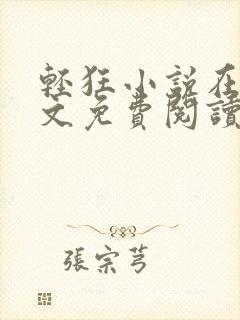 輕狂小說在
文免費閱讀
張宗芎